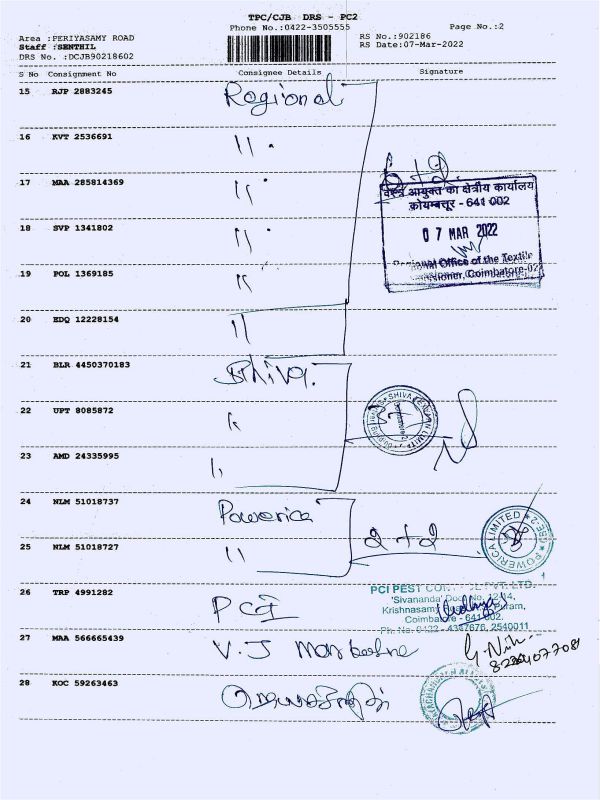 TPC/CJB DRS - PC2
Phone No.:0422-3505555 Page No.:2
Area :PERIYASAMY ROAD RS No.:902186
Staff :SENTHIL RS Date:07-Mar-2022
DRS No. :DCJB90218602
S No Consignment No Consignee Details Signature
15 RJP 2883245 Regional
16 KVT 2536691 "
17 MAA 285814369 "
वस्त्र आयुक्त का क्षेत्रीय कार्यालय
कोयम्बत्तूर - 641 002
18 SVP 1341802 "
07 MAR 2022
Regional Office of the Textile
19 POL 1369185 "
Commissioner, Coimbatore-02
20 EDQ 12228154 "
21 BLR 4450370183 Shiva.
22 UPT 8085872 "
23 AMD 24335995 "
24 NLM 51018737 Powerica
POWERICA LIMITED
25 NLM 51018727 " 2+2
26 TRP 4991282 PCI
PCI PEST CONTROL PVT. LTD.
'Sivananda' Door No. 12-14,
Krishnasamy Puram,
Coimbatore - 641 002.
Ph: No: 0422 - 4387676, 2540011
27 MAA 566665439 V.J Marketing
28 KOC 59263463